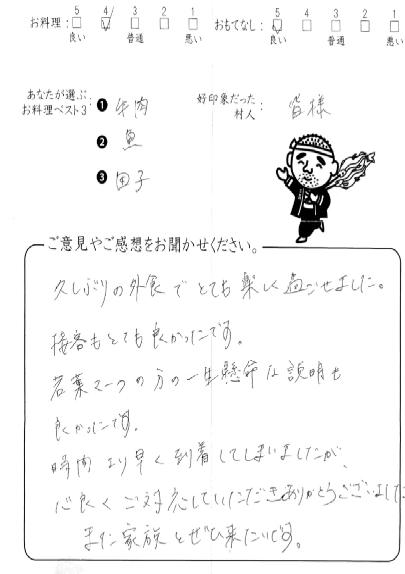 お料理： 5 4 3 2 1 おもてなし： 5 4 3 2 1
良い 普通 悪い 良い 普通 悪い
あなたが選ぶ
お料理ベスト3：
❶ 牛肉
❷ 魚
❸ 田子
好印象だった
村人：
皆様
ご意見やご感想をお聞かせください。
久しぶりの外食でとても楽しく過ごせました。
接客もとても良かったです。
若葉マークの方の一生懸命な説明も
良かったです。
時間より早く到着してしまいましたが、
心良くご対応していただきありがとうございました
また家族とぜひ来たいです。